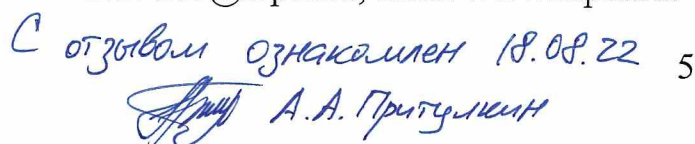 С отзывом ознакомлен 18.08.22
5
А.А. Притулкин